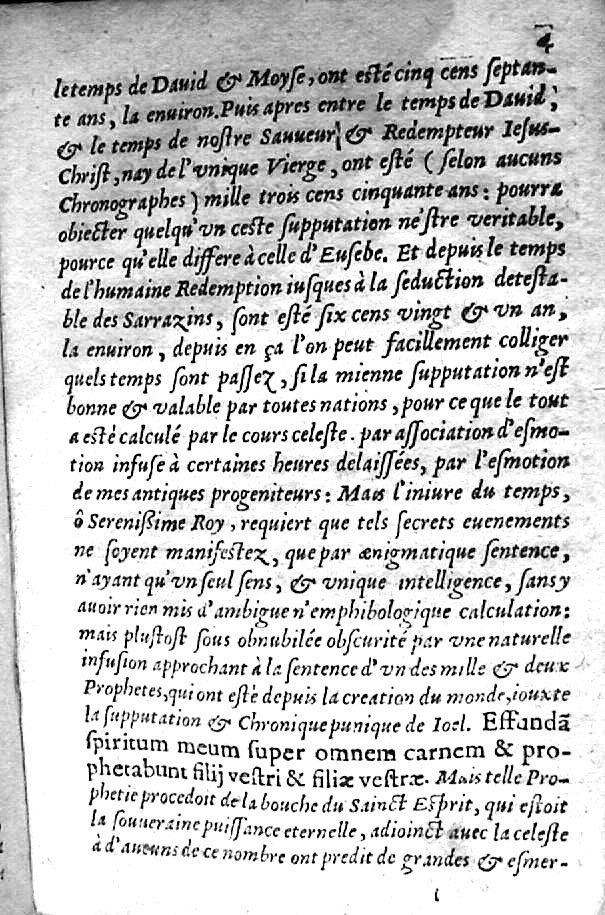 4
le temps de Dauid & Moyse, ont esté cinq cens septan-
te ans, la enuiron. Puis apres entre le temps de Dauid,
& le temps de nostre Sauueur, & Redempteur Iesus-
Christ, nay de l'vnique Vierge, ont esté (selon aucuns
Chronographes) mille trois cens cinquante ans: pourra
obiecter quelqu'vn ceste supputation ne'stre veritable,
pource qu'elle differe à celle d'Eusebe. Et depuis le temps
de l'humaine Redemption iusques à la seduction detesta-
ble des Sarrazins, sont esté six cens vingt & vn an,
la enuiron, depuis en ça l'on peut facillement colliger
quels temps sont passez, si la mienne supputation n'est
bonne & valable par toutes nations, pour ce que le tout
a esté calculé par le cours celeste. par association d'esmo-
tion infuse à certaines heures delaissées, par l'esmotion
de mes antiques progeniteurs: Mais l'iniure du temps,
ô Serenissime Roy, requiert que tels secrets euenements
ne soyent manifestez, que par ænigmatique sentence,
n'ayant qu'vn seul sens, & vnique intelligence, sans y
auoir rien mis d'ambigue n'emphibologique calculation:
mais plustost sous obnubilée obscurité par vne naturelle
infusion approchant à la sentence d'vn des mille & deux
Prophetes, qui ont esté depuis la creation du monde, iouxte
la supputation & Chronique punique de Ioel. Effundã
spiritum meum super omnem carnem & pro-
phetabunt filij vestri & filiæ vestræ. Mais telle Pro-
phetie procedoit de la bouche du Sainct Esprit, qui estoit
la souueraine puissance eternelle, adioinct auec la celeste
à d'aucuns de ce nombre ont predit de grandes & esmer-
i